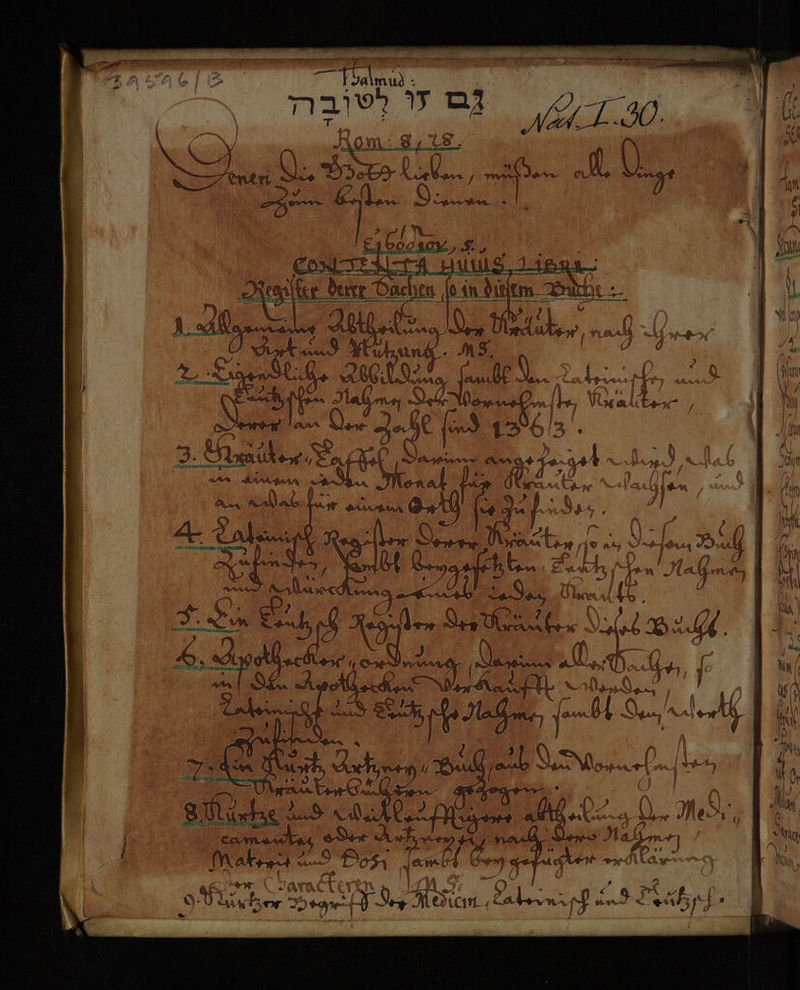 Psalmud:
גם זו לטובה
Rom: 8, 28.
Denen Die Gott Lieben, müssen alle Dinge
zum besten Dienen.
CONTENTA HUIUS LIBRI
Register derer Sachen so in disem Buche
1. Allgemeine Abtheilung Der Kräuter, nach Ihrer
Art und Nutzung. MS.
2. Eigendliche Abbildung sambt Den Lateinischen und
Teutschen Nahmen Der Vornehmsten Kräuter,
Deren an Der Zahl sind
3. Kräuter Taffel, Darinn angezeiget wird, was
in jedem Monat für Kräuter wachsen, und
an was für einem Orth sie zu finden.
4. Lateinisch Register Derer Kräuter so in Disem Buch
Zufinden, sambt beygesetzten Teutschen Nahmen
und jedes Krauts.
5. Ein Teutsch Register Der Kräuter Dises Buchs.
6. Apothecker ordnung, Darinn alle, so
in Den Apothecken Verkaufft werden,
Lateinisch und Teutsche Nahmen, sambt Den werth
Zufinden.
7. Ein Artzney Buch, aus Den Vornehmsten
Kräuter Büchern gezogen.
8. Kurtze und abtheilung Der Medi-
camenten oder Artzney, nach Deren Nahmen,
Materie und Dosi sambt beygefügter erklärung
Der Characteren MS.
9. Kurtzer Begriff Der Medicin, Lateinisch und Teutsch.